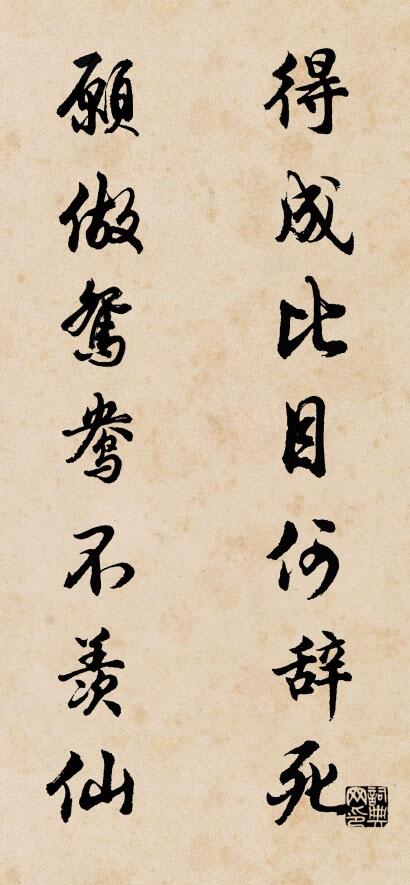 得成比目何辞死
願做鴛鴦不羨仙
詞典网印